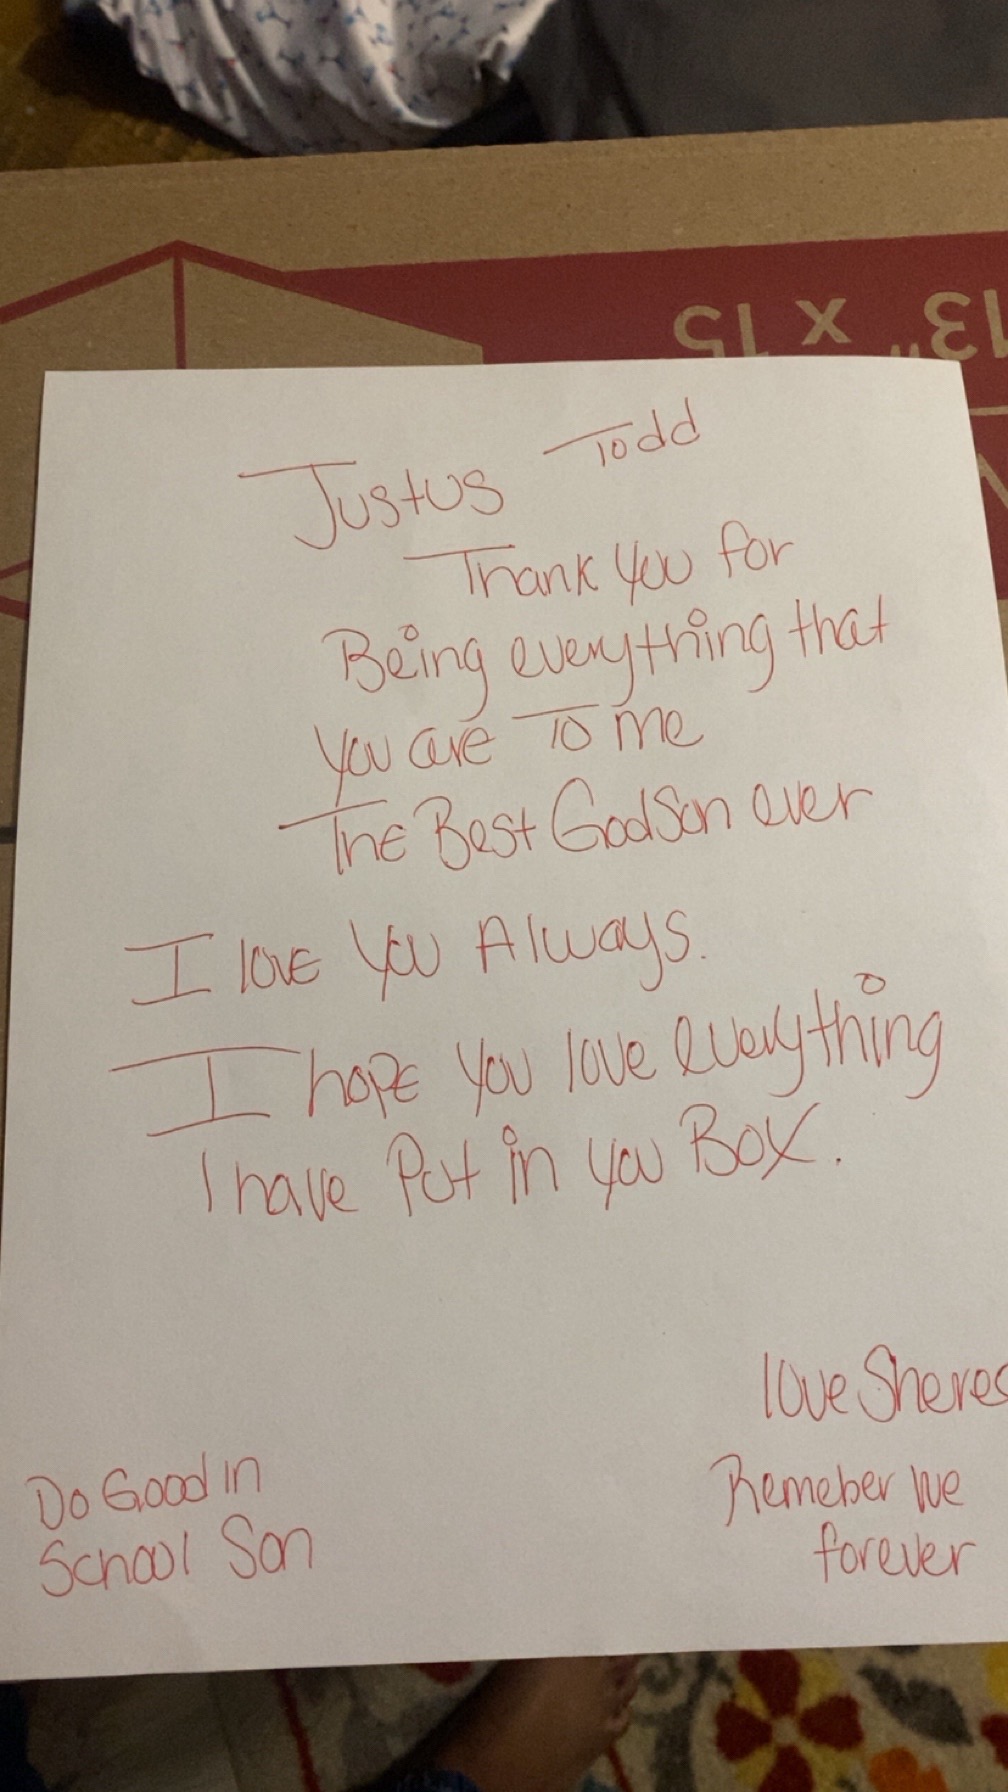 13" x 15
Justus Todd
Thank you for
Being everything that
you are To me
The Best GodSon ever
I love You Always.
I hope you love everything
I have Put in you Box.
love
Do Good in
School Son
Remeber we
forever